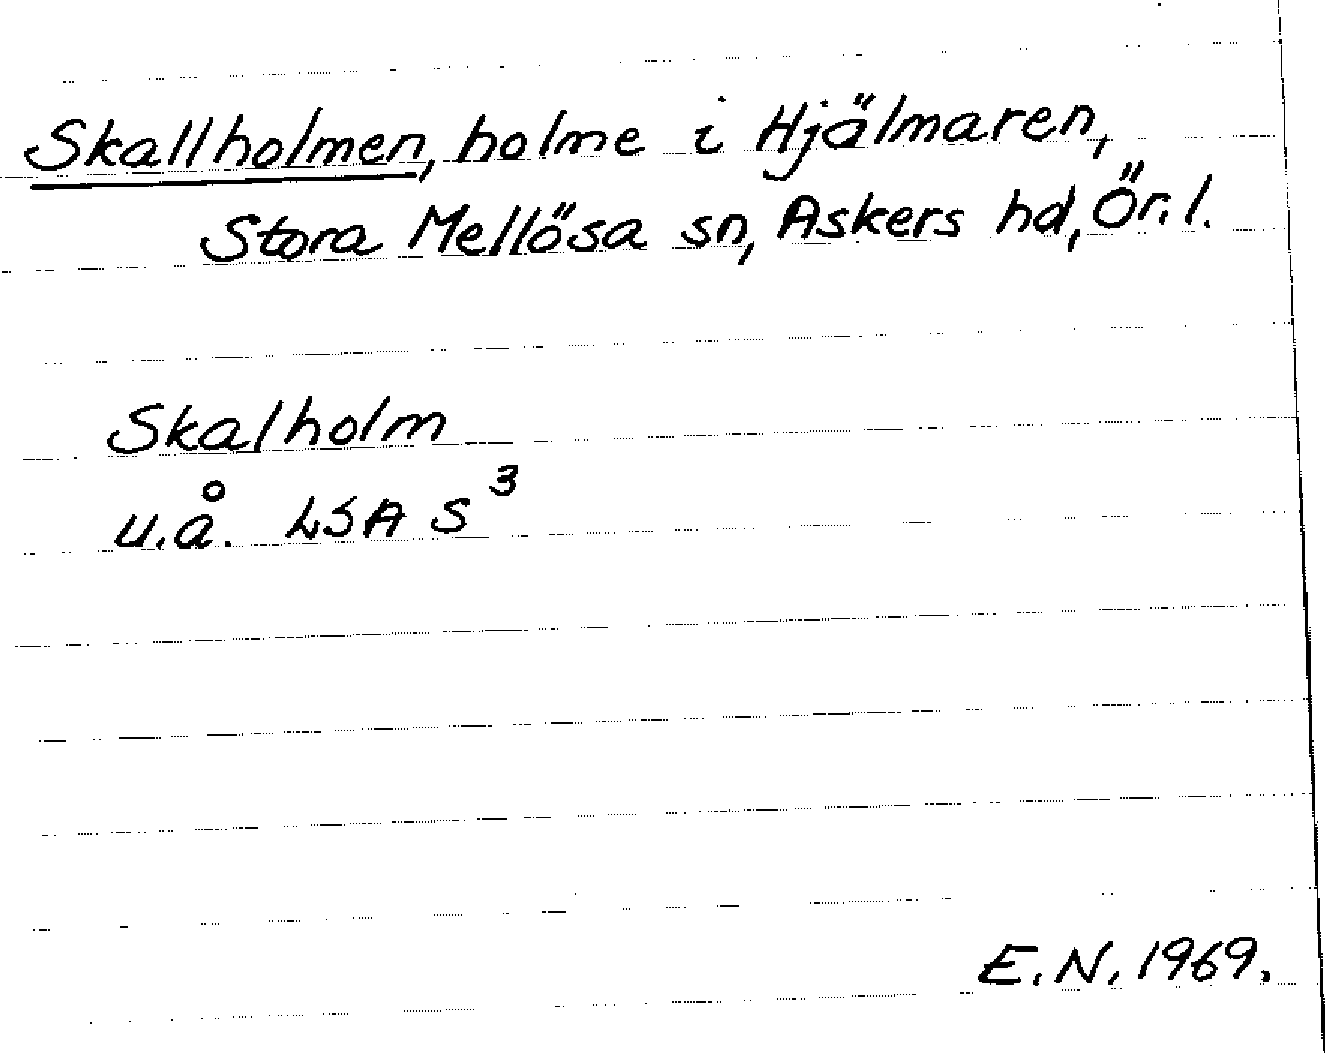 Skallholmen, holme i Hjälmaren,
Stora Mellösa sn, Askers hd, Ör. l.
Skalholm
u.å. LSA S³
E.N. 1969.